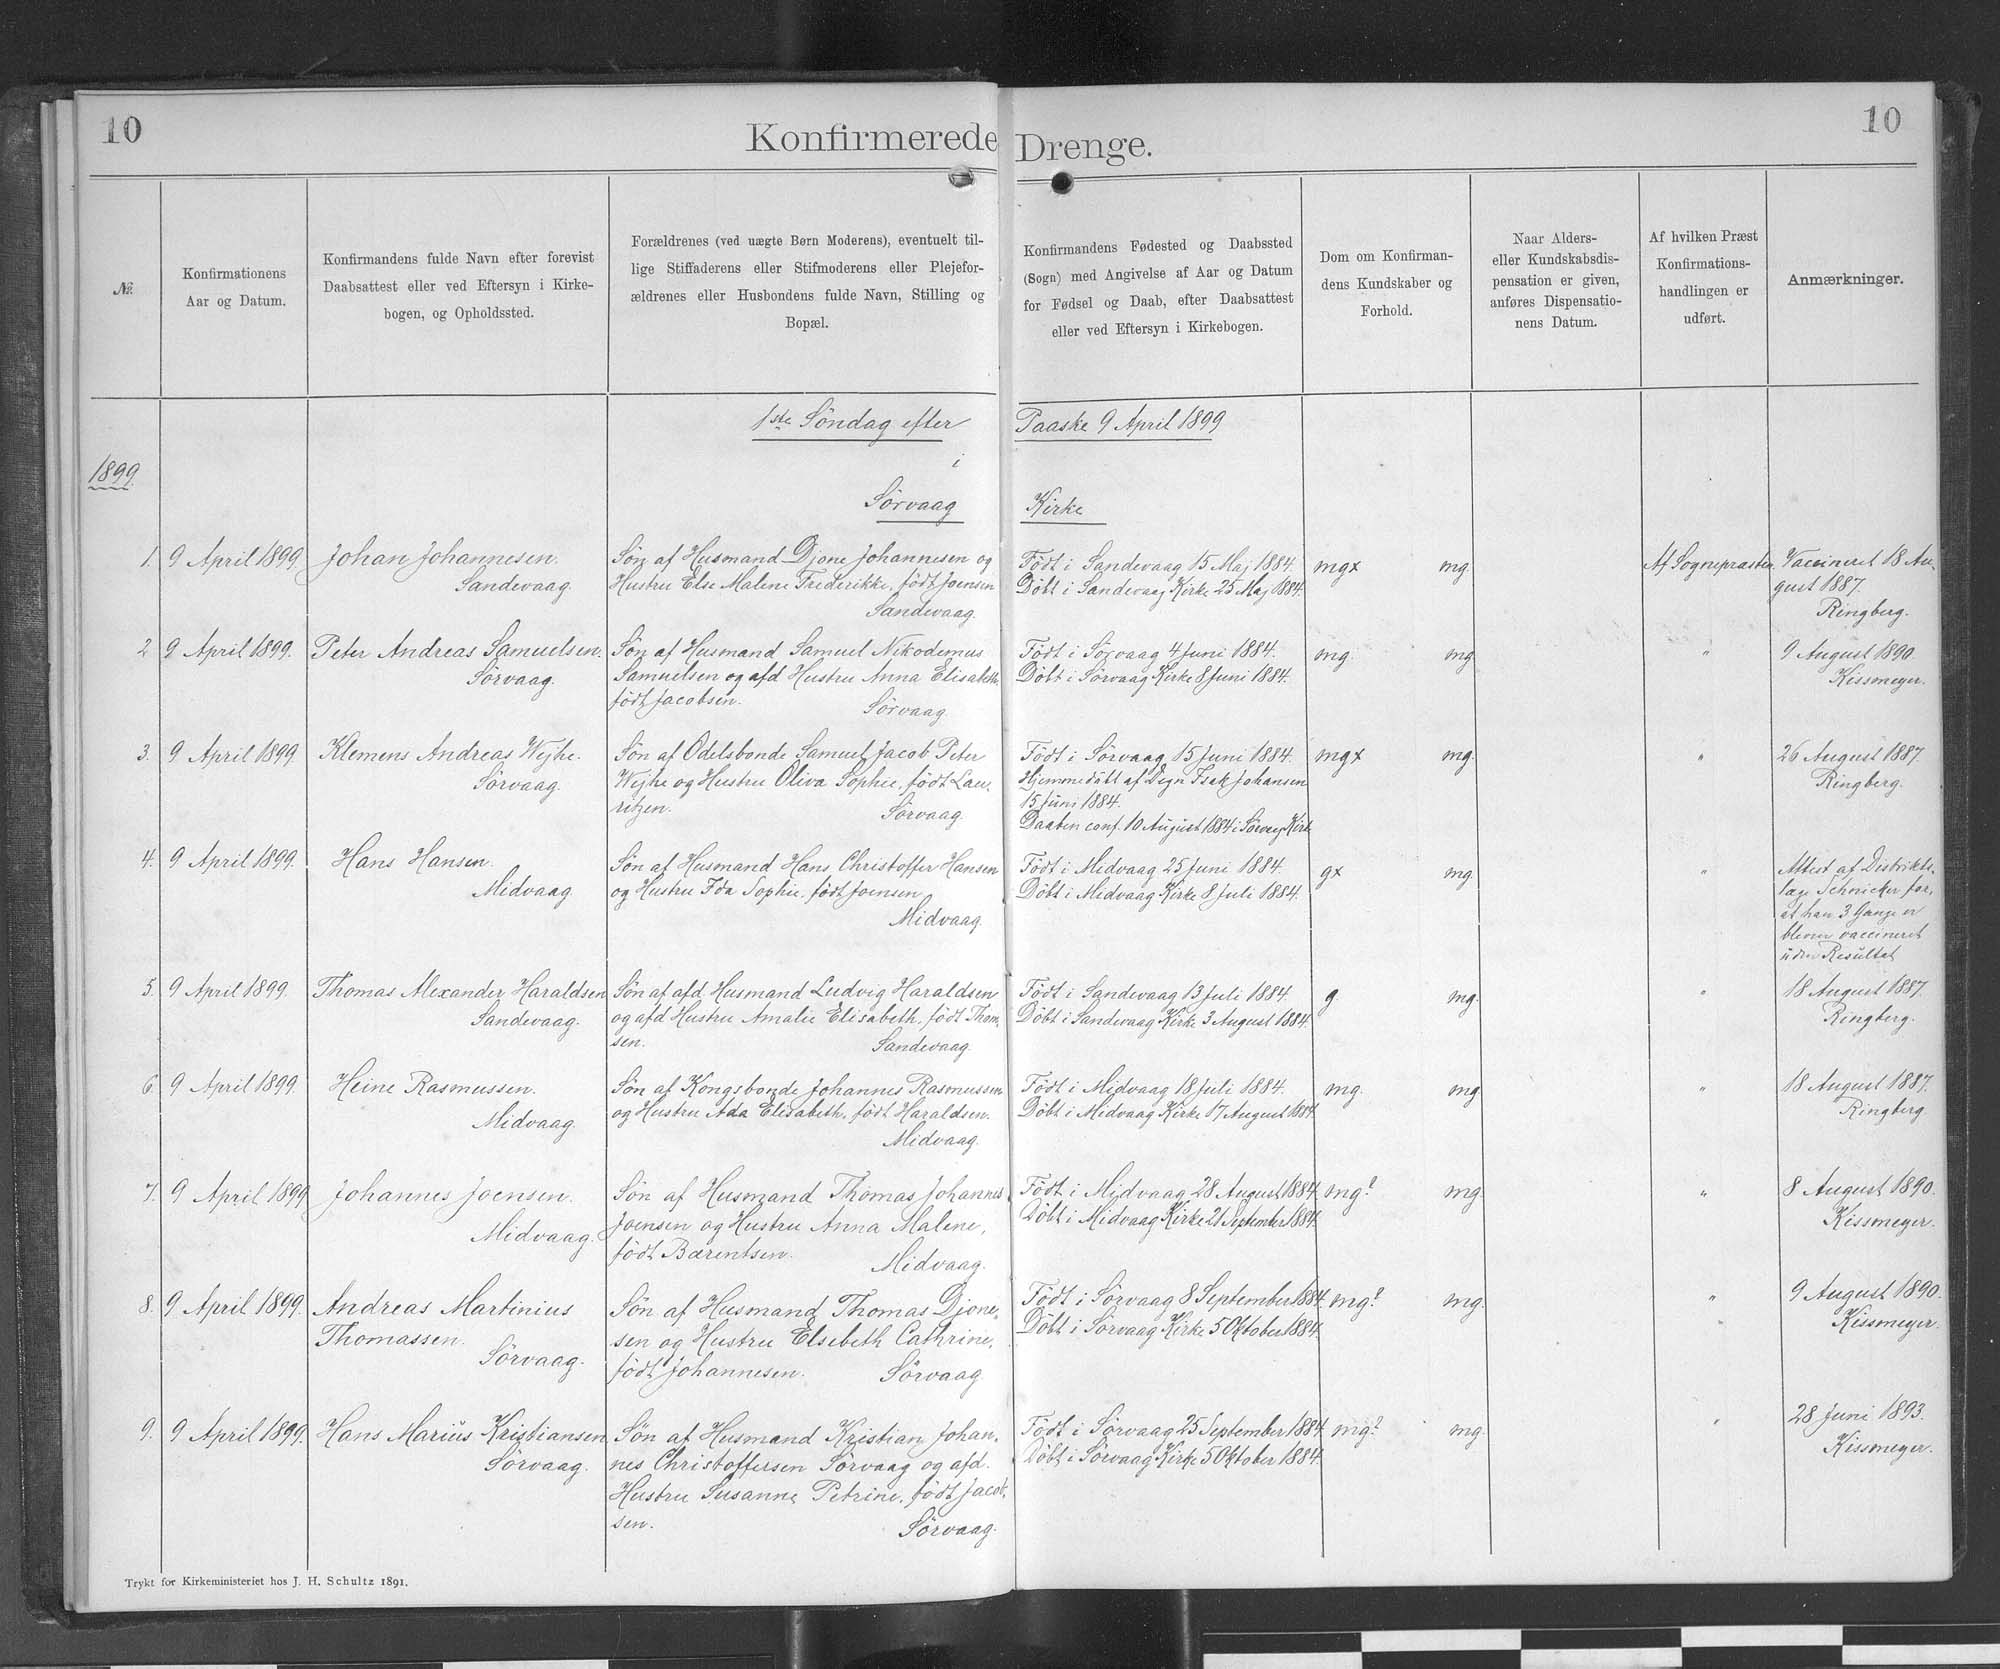 10
Konfirmerede Drenge.
10
№.
Konfirmationens
Aar og Datum.
Konfirmandens fulde Navn efter forevist
Daabsattest eller ved Eftersyn i Kirke-
bogen, og Opholdssted.
Forældrenes (ved uægte Børn Moderens), eventuelt til-
lige Stiffaderens eller Stifmoderens eller Plejefor-
ældrenes eller Husbondens fulde Navn, Stilling og
Bopæl.
Konfirmandens Fødested og Daabssted
(Sogn) med Angivelse af Aar og Datum
for Fødsel og Daab, efter Daabsattest
eller ved Eftersyn i Kirkebogen.
Dom om Konfirman-
dens Kundskaber og
Forhold.
Naar Alders-
eller Kundskabsdis-
pensation er given,
anføres Dispensatio-
nens Datum.
Af hvilken Præst
Konfirmations-
handlingen er
udført.
Anmærkninger.
1ste Söndag efter Paaske 9 April 1899
i
1899.
Sörvaag Kirke
1. 9 April 1899.
Johan Johannesen.
Sandevaag.
Søn af Husmand Djone Johannesen og
Hustru Else Malene Frederikke, født Joensen
Sandevaag.
Født i Sandevaag 15 Maj 1884.
Döbt i Sandevaag Kirke 25 Maj 1884.
mgx
mg.
Af Sognepræsten.
Vaccineret 18 Au-
gust 1887.
Ringberg.
2 9 April 1899.
Peter Andreas Samuelsen.
Sörvaag.
Søn af Husmand Samuel Nikodemus
Samuelsen og afd Hustru Anna Elisabeth,
født Jacobsen.
Sörvaag.
Født i Sörvaag 4 Juni 1884.
Döbt i Sörvaag Kirke 8 Juni 1884.
mg.
mg.
"
9 August 1890.
Kissmeyer.
3. 9 April 1899.
Klemens Andreas Wejhe.
Sörvaag.
Søn af Odelsbonde Samuel Jacob Peter
Wejhe og Hustru Oliva Sophie, født Lau-
ritzen.
Sörvaag.
Født i Sörvaag 15 Juni 1884.
Hjemmedöbt af Degn Isak Johansen
15 Juni 1884.
Daaben conf. 10 August 1884 i Sörvaag Kirke
mgx
mg.
"
26 August 1887.
Ringberg.
4. 9 April 1899.
Hans Hansen.
Midvaag.
Søn af Husmand Hans Christoffer Hansen
og Hustru Ida Sophie, født Joensen
Midvaag.
Født i Midvaag 25 Juni 1884.
Döbt i Midvaag Kirke 8 Juli 1884.
gx
mg.
"
Attest af Distrikts-
læge Schnicker for,
at han 3 Gange er
bleven vaccineret
uden Resultat
5. 9 April 1899.
Thomas Alexander Haraldsen
Sandevaag.
Søn af afd. Husmand Ludvig Haraldsen
og afd Hustru Amalie Elisabeth, født Thom-
sen.
Sandevaag.
Født i Sandevaag 13 Juli 1884.
Döbt i Sandevaag Kirke 3 August 1884.
g.
mg.
"
18 August 1887.
Ringberg.
6. 9 April 1899.
Heine Rasmussen.
Midvaag.
Søn af Kongsbonde Johannes Rasmussen
og Hustru Ada Elisabeth, født Haraldsen.
Midvaag.
Født i Midvaag 18 Juli 1884.
Döbt i Midvaag Kirke 17 August 1884.
mg.
mg.
"
18 August 1887.
Ringberg.
7. 9 April 1899
Johannes Joensen.
Midvaag.
Søn af Husmand Thomas Johannes
Joensen og Hustru Anna Malene,
født Barentsen.
Midvaag.
Født i Midvaag 28 August 1884.
Döbt i Midvaag Kirke 21 September 1884.
mg?
mg.
"
8 August 1890.
Kissmeyer.
8. 9 April 1899.
Andreas Martinius
Thomassen.
Sörvaag.
Søn af Husmand Thomas Djone-
sen og Hustru Elsebeth Cathrine,
født Johannesen.
Sörvaag.
Født i Sörvaag 8 September 1884.
Döbt i Sörvaag Kirke 5 Oktober 1884.
mg?
mg.
"
9 August 1890.
Kissmeyer.
9. 9 April 1899.
Hans Marius Kristiansen
Sörvaag.
Søn af Husmand Kristian Johan-
nes Christoffersen Sörvaag og afd.
Hustru Susanne Petrine, født Jacob-
sen.
Sörvaag.
Født i Sörvaag 25 September 1884.
Döbt i Sörvaag Kirke 5 Oktober 1884.
mg?
mg.
"
28 Juni 1893.
Kissmeyer.
Trykt for Kirkeministeriet hos J. H. Schultz 1891.